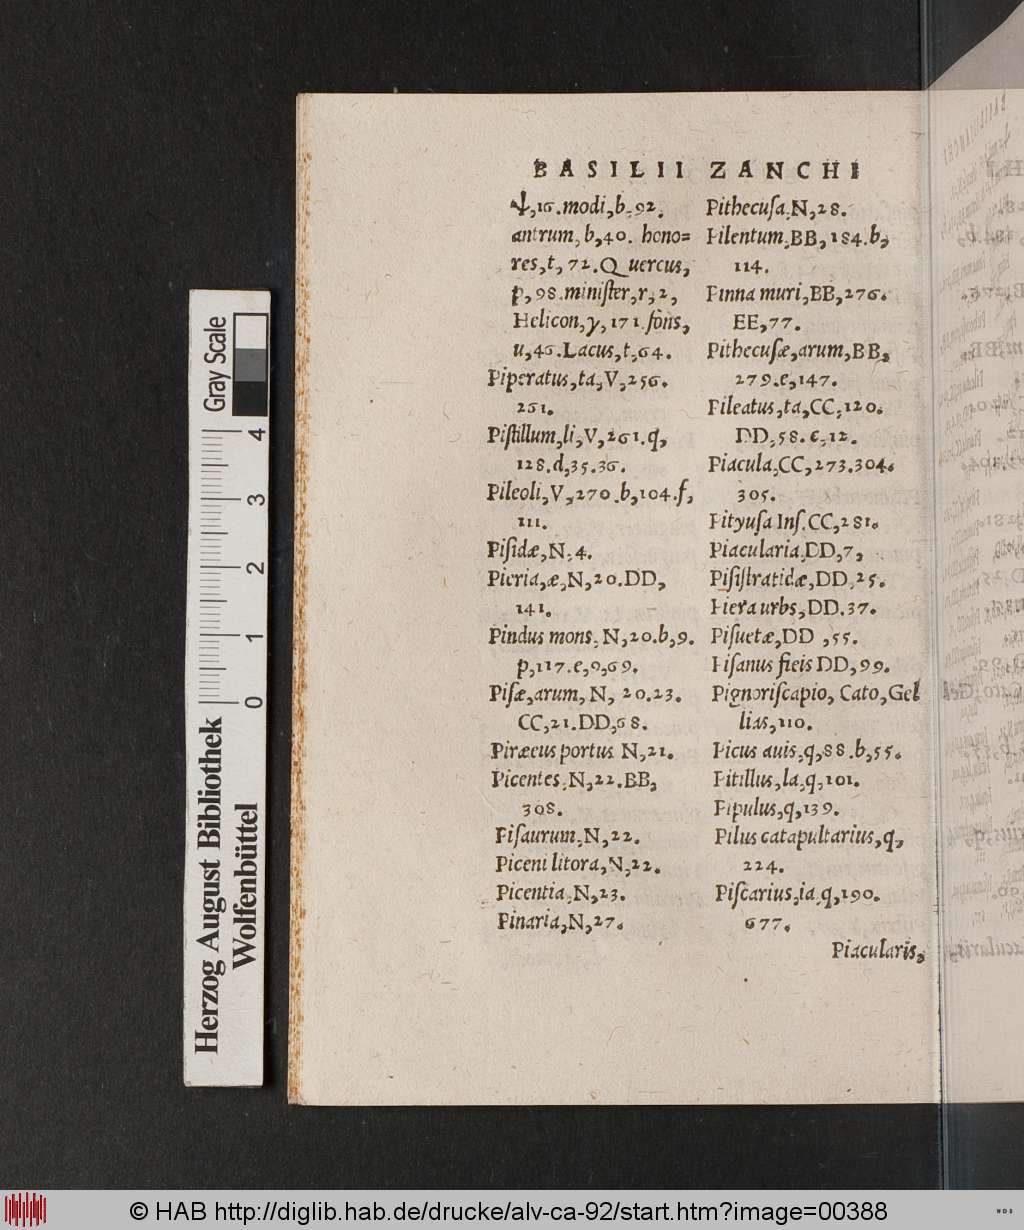 BASILII ZANCHI
ψ,16.modi,b,92.
antrum,b,40. hono=
res,t,72.Quercus,
p,98.miniſter,r,2,
Helicon,y,171.fons,
u,46.Lacus,t,64.
Piperatus,ta,V,256.
261.
Piſtillum,li,V,261.q,
128.d,35.36.
Pileoli,V,270.b,104.f,
111.
Piſidæ,N,4.
Pieria,æ,N,20.DD,
141.
Pindus mons,N,20.b,9.
p,117.e,9,69.
Piſæ,arum,N, 20.23.
CC,21.DD,68.
Piræeus portus N,21.
Picentes,N,22.BB,
308.
Piſaurum,N,22.
Piceni litora,N,22.
Picentia,N,23.
Pinaria,N,27.
Pithecuſa,N,28.
Pilentum,BB,184.b,
114.
Pinna muri,BB,276.
EE,77.
Pithecuſæ,arum,BB,
279.e,147.
Pileatus,ta,CC,120.
DD,58.e,12.
Piacula,CC,273.304.
305.
Pityuſa Inſ.CC,281.
Piacularia,DD,7,
Piſiſtratidæ,DD,25.
Piera urbs,DD.37.
Piſuetæ,DD ,55.
Piſanus fieis DD,99.
Pignoriſcapio, Cato,Gel
lias,110.
Picus auis,q,88.b,55.
Pitillus,la,q,101.
Pipulus,q,139.
Pilus catapultarius,q,
224.
Piſcarius,ia,q,190.
677.
Piacularis,
Gray Scale
0 1 2 3 4
Herzog August Bibliothek
Wolfenbüttel
© HAB http://diglib.hab.de/drucke/alv-ca-92/start.htm?image=00388